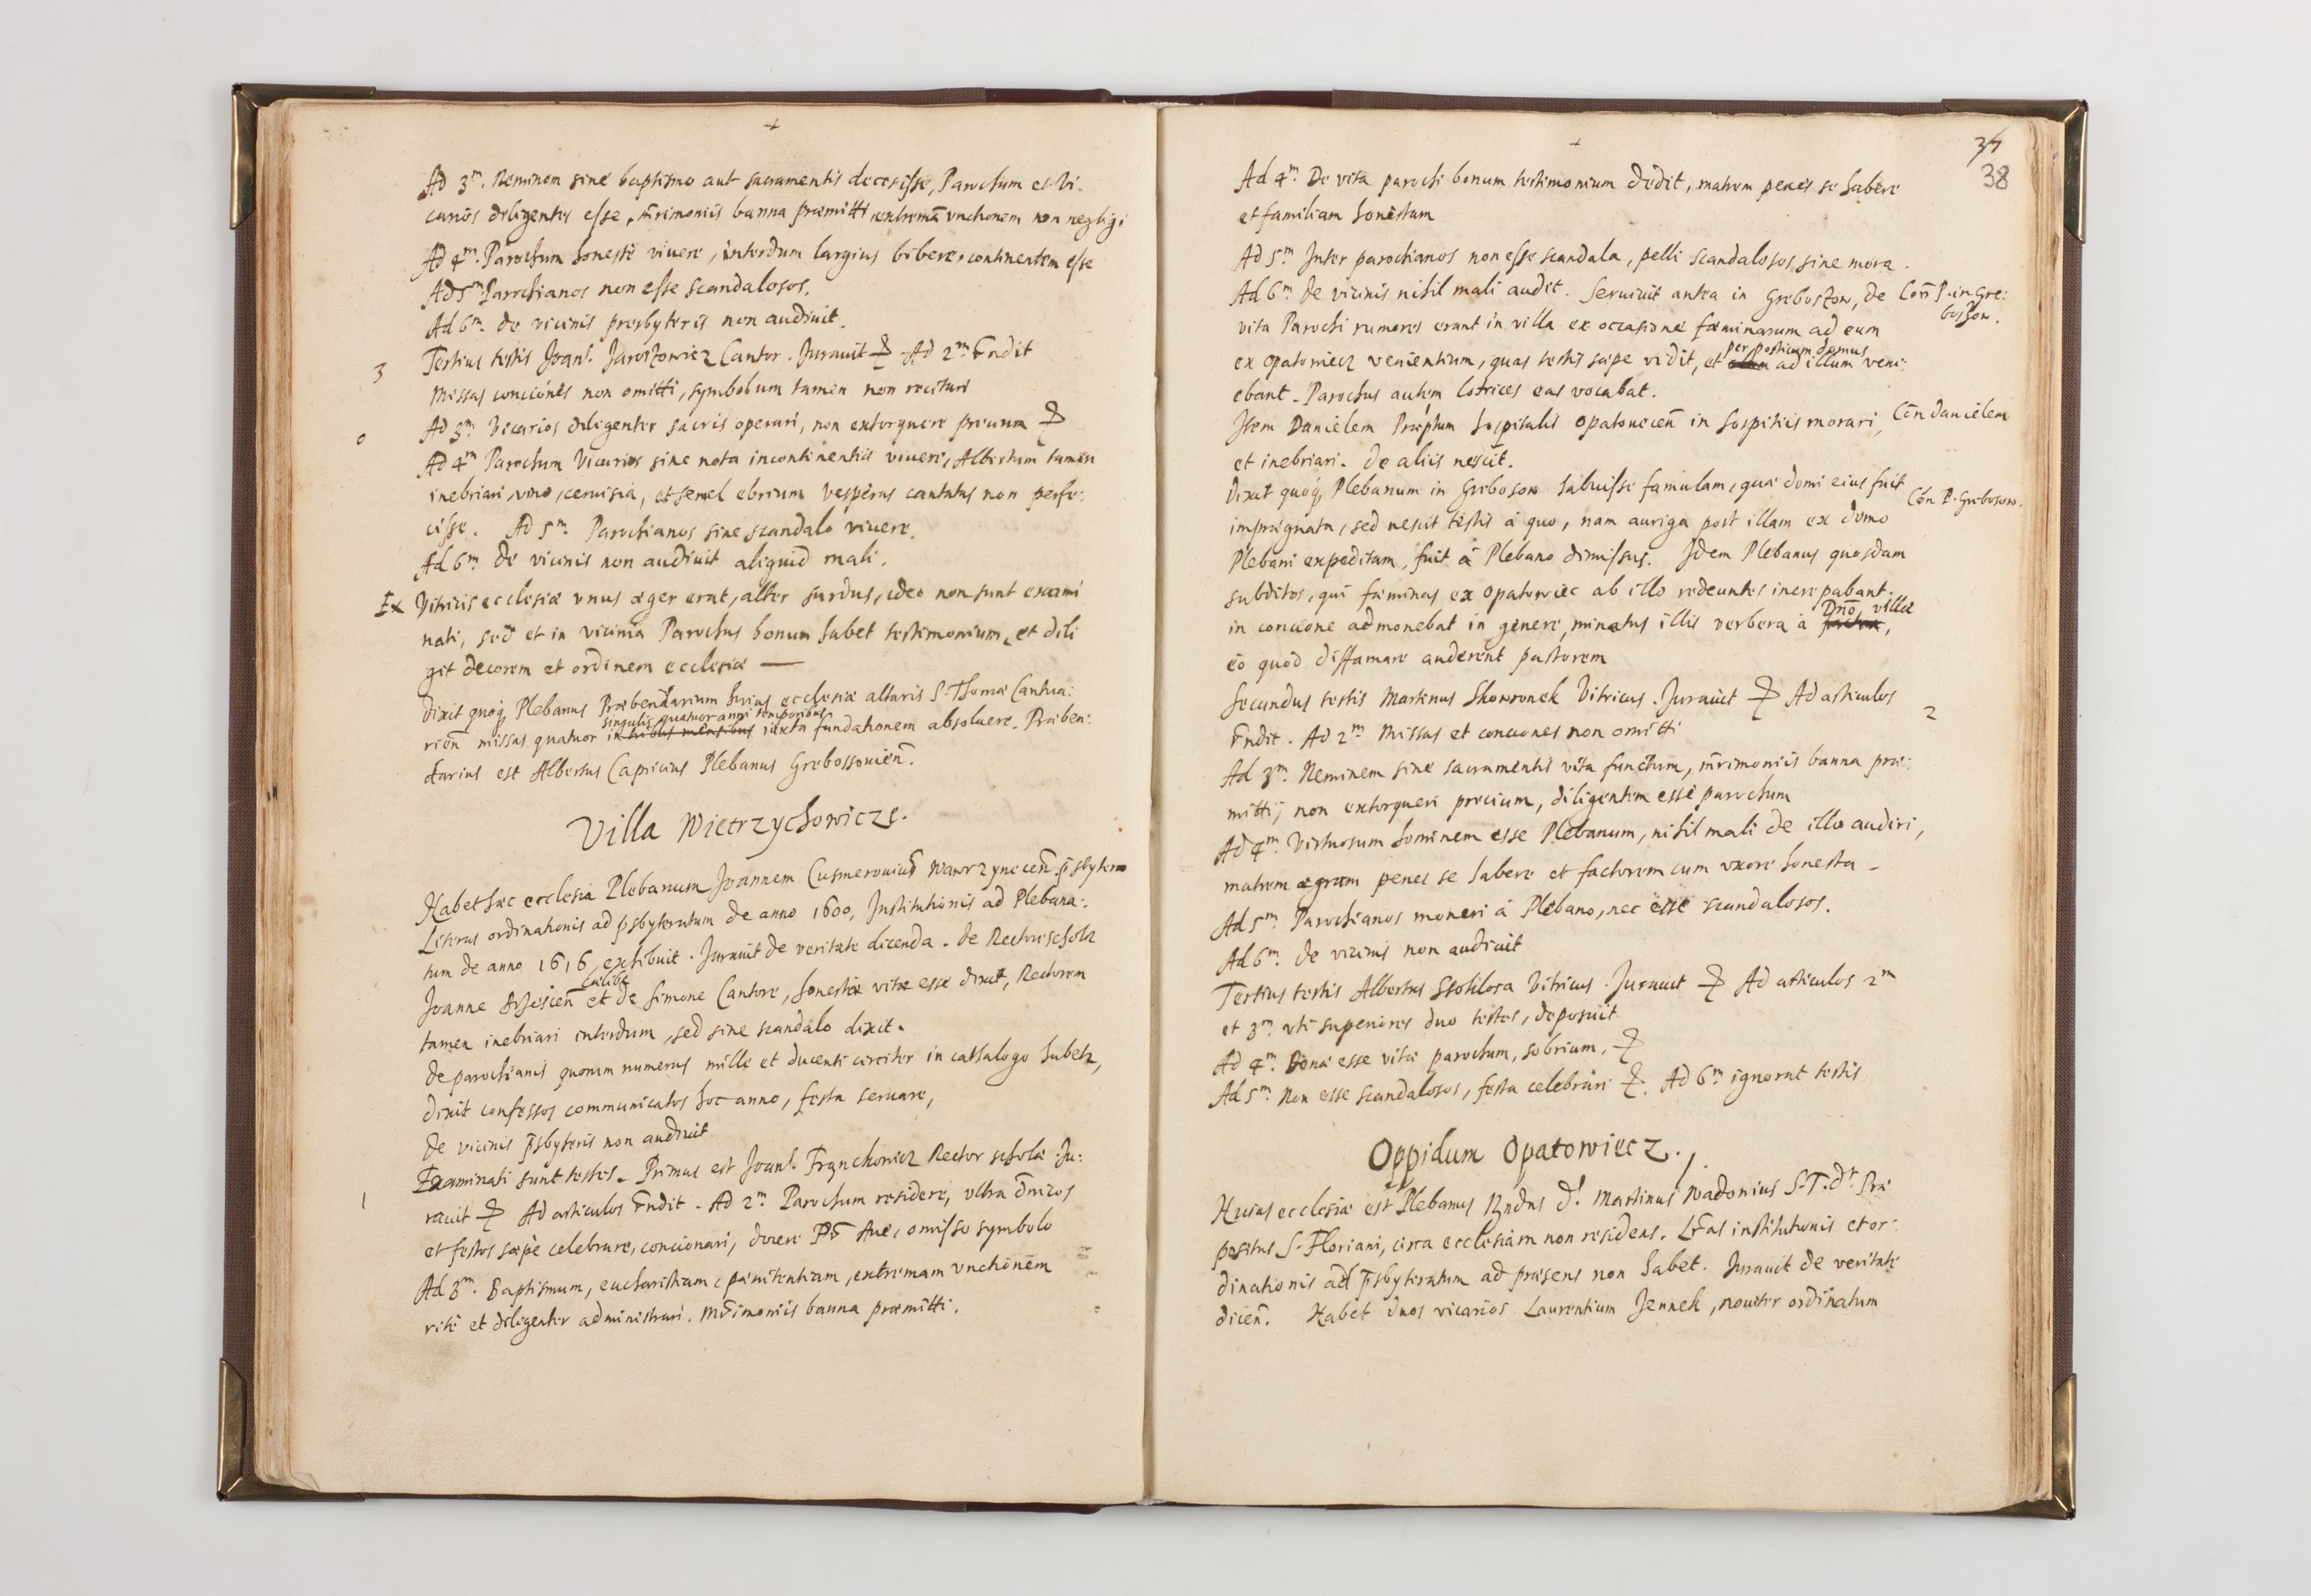 +
Ad 3m. Neminem sine baptismo aut sacramentis decessisse, Parochum et Vi-
carios diligentes esse, mrimoniis banna præmitti, extremã unctionem non negligi
Ad 4m. Parochum honestè vivere, interdum largius bibere, continentem esse
Ad 5m Parochianos non esse scandalosos.
Ad 6m. de vicinis presbyteris non audivit.
3 Tertius testis Joans. Jaroszowicz Cantor. Juravit Ad 2m Rndit
Missas conciones non omitti, symbolum tamen non recitari
0 Ad 3m. Vicarios diligenter sacris operari, non extorquere precium
Ad 4m Parochum Vicarios sine nota incontinentis vivere, Albertum tamen
inebriari vino, cervisia, et semel ebrium Vesperas cantatas non perfe:
cisse. Ad 5m. Parochianos sine scandalo vivere.
Ad 6m. De vicinis non audivit aliquid mali.
Ex Vitricis ecclesiæ unus æger erat, alter surdus, ideo non sunt exami
nati, sed et in vicinia Parochus bonum habet testimonium, et dili
git decorem et ordinem ecclesiæ —
Dixit quoq Plebanus Præbendarium huius ecclesiæ altaris S. Thomæ Cantua:
singulis quatuor anni temporibus
rien missas quatuor in tribus mensibus iuxta fundationem absolvere. Præben:
darius est Albertus Capricius Plebanus Grebossovien.
Villa Wietrzychowicze.
Habet hæc ecclesia Plebanum Joannem Cusmerovium Wawrzynecen psbyterm
Literas ordinationis ad psbyteratum de anno 1600, Institutionis ad Plebana:
tum de anno 1616 exhibuit. Juravit de veritate dicenda. de Rectore scholæ
Joanne et de Simone Cantore, honestæ vitæ esse dixit, Rectorem
tamen inebriari interdum, sed sine scandalo dixit.
de parochianis quorum numerus mille et ducenti circiter in cathalogo habetr,
dixit confessos communicatos hoc anno, festa servare,
de vicinis psbyteris non audivit
Examinati sunt testes. Primus est Joans. Frynckowicz Rector scholæ. Ju:
1 ravit Ad articulos Rndit. Ad 2m Parochum residere, ultra dnicos
et festos sæpè celebrare, concionari, docere Pr Ave, omisso symbolo
Ad 3m. Baptismum, eucharistiam, pænitentiam, extremam unctionem
ritè et diligenter administrari. Mrimoniis banna præmitti.
+
37
38
Ad 4m. De vita parochi bonum testimonium dedit, matrem penes se habere
et familiam honestam
Ad 5m. Inter parochianos non esse scandala, pelli scandalosos sine mora.
Ad 6m. De vicinis nihil mali audit. Servivit antea in Greboszow, de
Con P. in Gre:
boszow.
vita Parochi rumores erant in villa ex occasione fæminarum ad eum
per posticum domus
ex Opatowiecz venientium, quas testis sæpe vidit, et ad illum veni:
ebant. Parochus autem lotrices eas vocabat.
Item Danielem Præptum hospitalis Opatouecen in hospitiis morari,
Con Danielem
et inebriari. De aliis nescit.
Dixit quoq Plebanum in Greboszow habuisse famulam, quæ domi eius fuit
Con P. Greboszow.
impregnata, sed nescit testis à quo, nam auriga post illam ex domo
Plebani expeditam, fuit à Plebano dimissus. Idem Plebanus quosdam
subditos, qui fæminas ex Opatowiec ab illo redeuntes increpabant.
Dno villæ
in concione admonebat in genere, minatus illis verbera à
eo quod diffamare auderent pastorem
Secundus testis Martinus Skowronek Vitricus. Juravit Ad articulos
2
Rndit. Ad 2m Missas et conciones non omitti
Ad 3m. Neminem sine sacramentis vita functum, mrimoniis banna præ:
mitti, non extorqueri precium, diligentem esse parochum
Ad 4m. Virtuosum hominem esse Plebanum, nihil mali de illo audiri,
matrem ægram penes se habere et factorem cum uxore honesta.
Ad 5m. Parochianos moneri à Plebano, nec esse scandalosos.
Ad 6m. De vicinis non audivit
Tertius testis Albertus Vitricus. Juravit Ad articulos 2m
et 3m. uti superiores duo testes, deposuit
Ad 4m. Bonæ esse vitæ parochum, sobrium,
Ad 5m. Non esse scandalosos, festa celebrari. Ad 6m ignorat testis
Oppidum Opatowiecz.
Huius ecclesiæ est Plebanus Rndus d. Martinus Wadovius S.T.Dr Præ
positus S. Floriani, circa ecclesiam non residens. Lras institutionis et or:
dinationis ad psbyteratum ad præsens non habet. Juravit de veritate
dicen. Habet duos vicarios Laurentium Jennek, noviter ordinatum